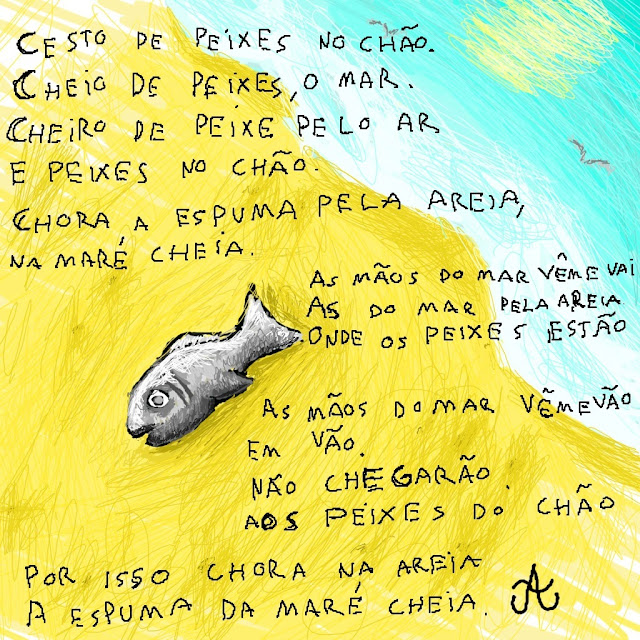 CESTO DE PEIXES NO CHÃO.
CHEIO DE PEIXES, O MAR.
CHEIRO DE PEIXE PELO AR
E PEIXES NO CHÃO.
CHORA A ESPUMA PELA AREIA,
NA MARÉ CHEIA.
AS MÃOS DO MAR VÊM E VAI
AS DO MAR PELA AREIA
ONDE OS PEIXES ESTÃO
AS MÃOS DO MAR VÊM E VÃO
EM VÃO.
NÃO CHEGARÃO.
AOS PEIXES DO CHÃO
POR ISSO CHORA NA AREIA
A ESPUMA DA MARÉ CHEIA.